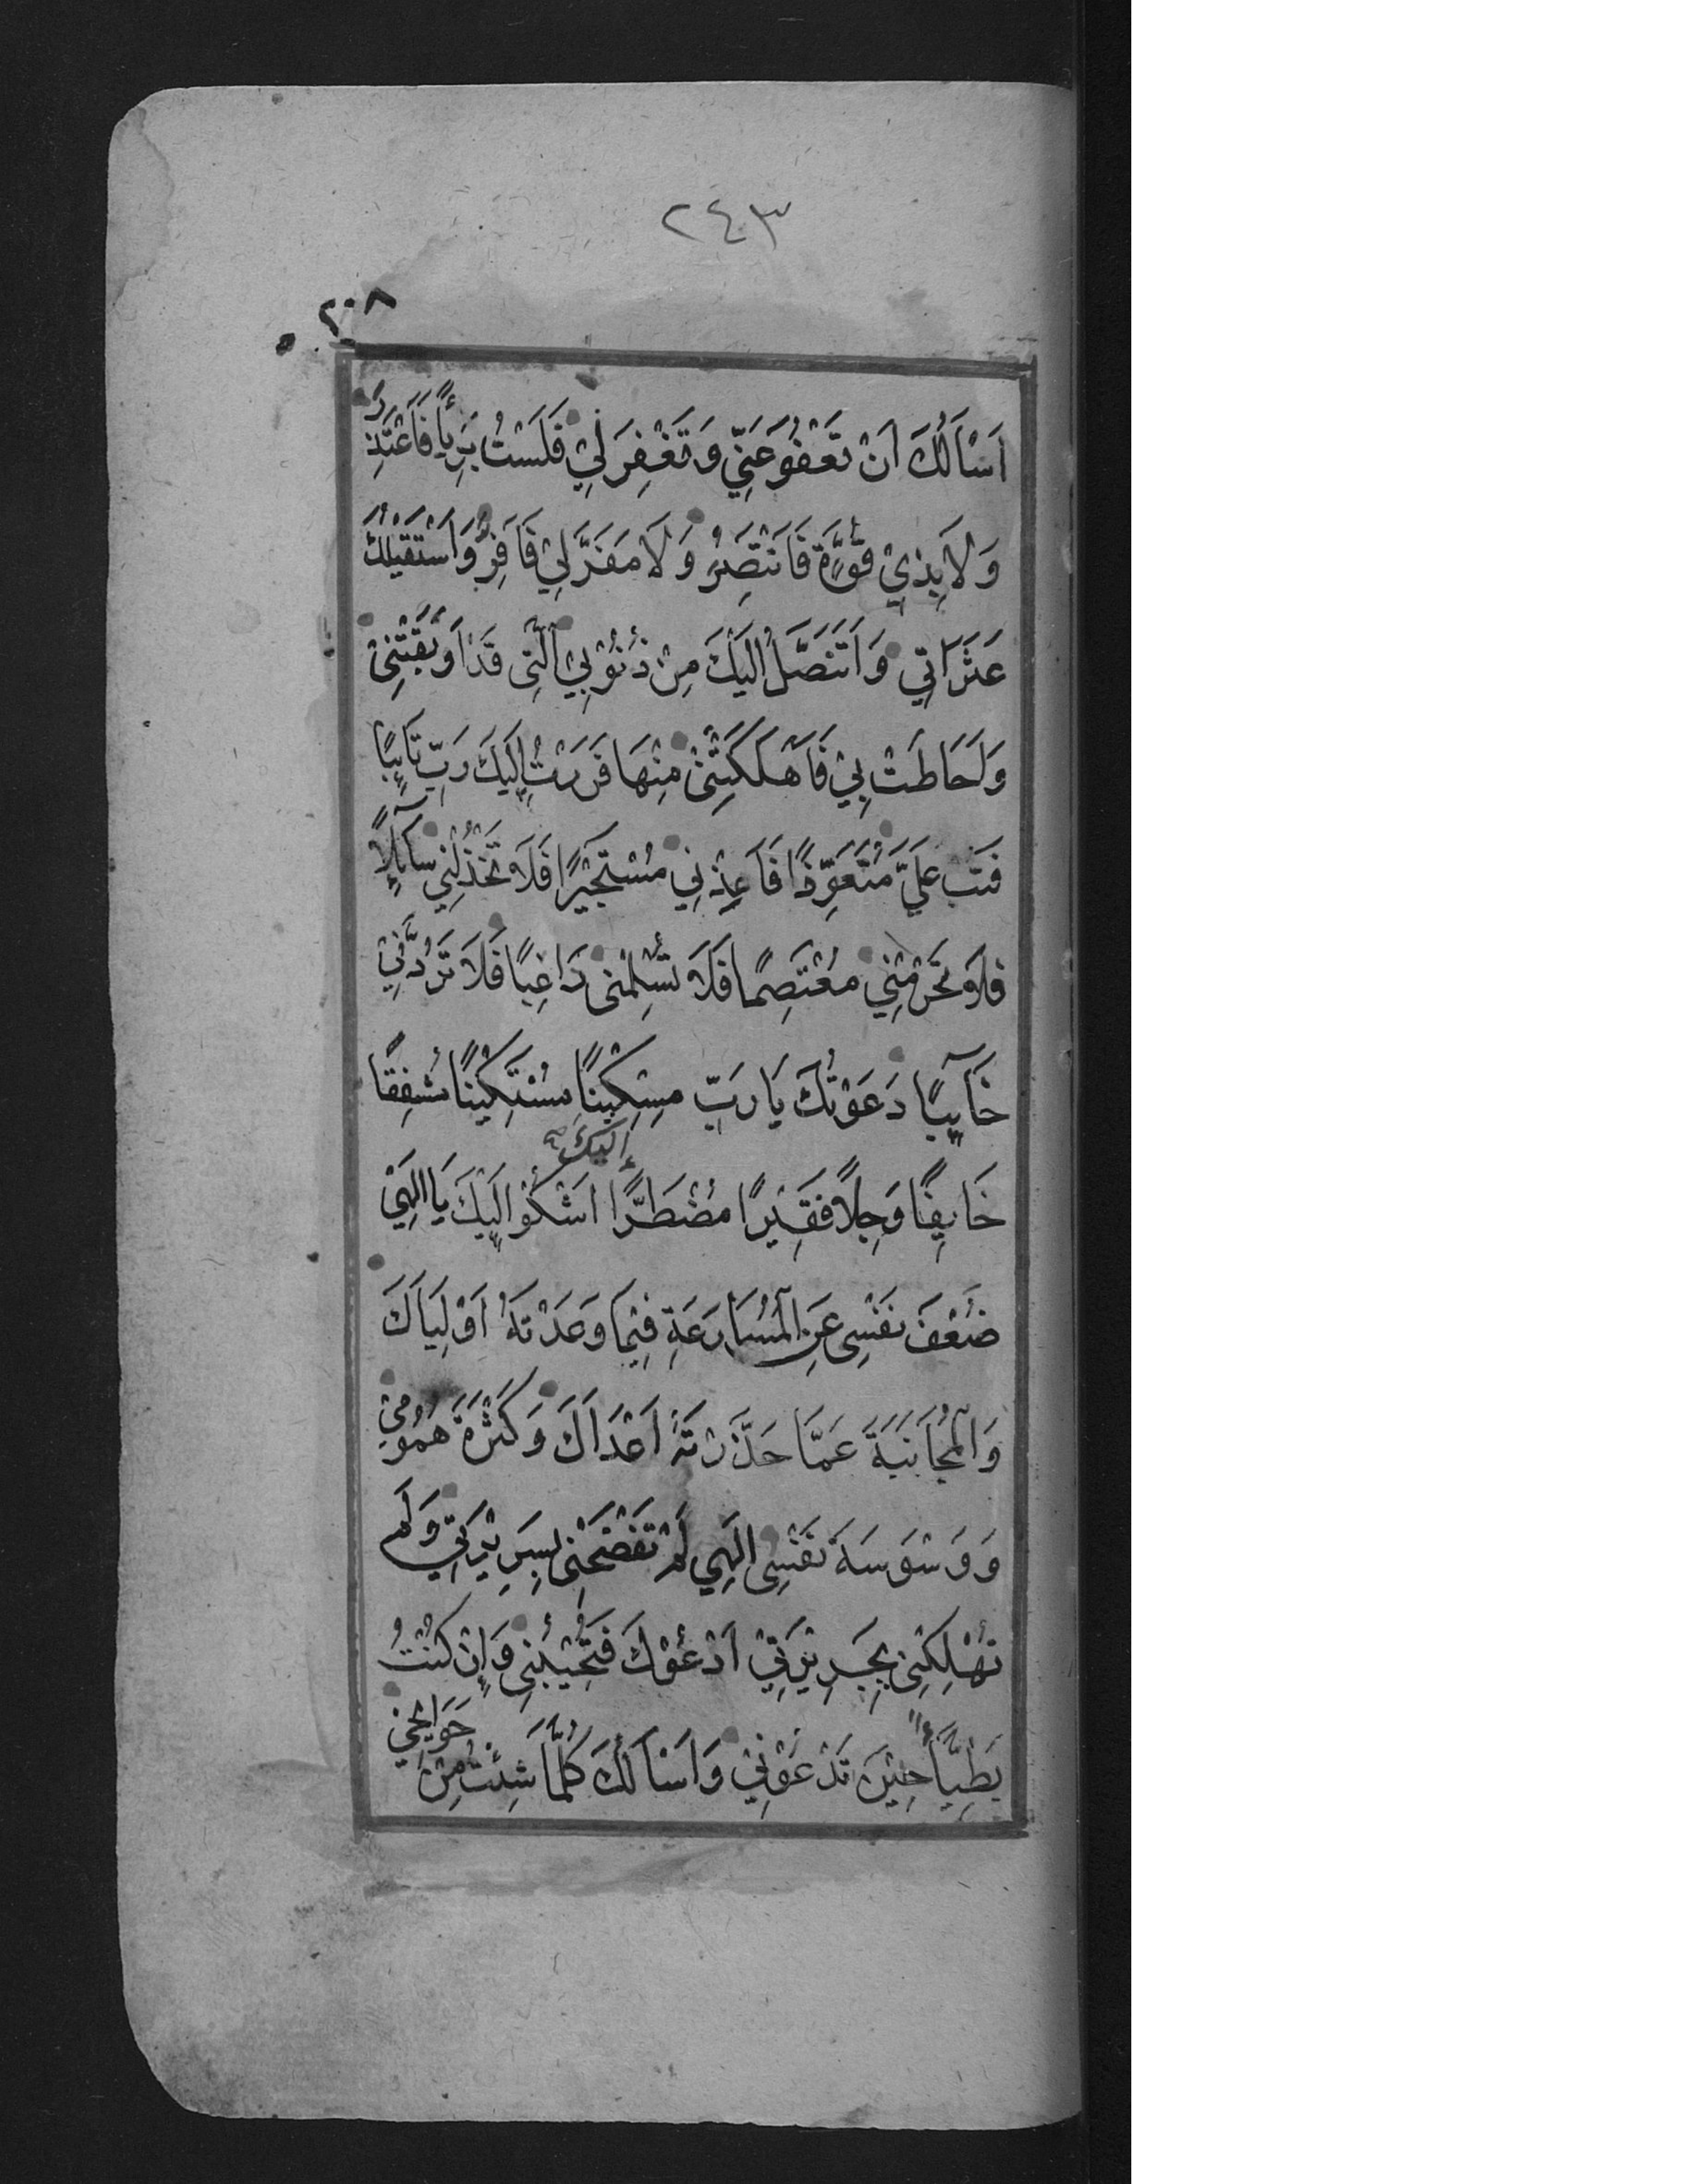 ٢٤٣
٢٠٨
اَسْاَلُكَ اَنْ تَعْفُوَ عَنِّي وَ تَغْفِرَ لِيْ فَلَسْتُ بَرِيًأ فَاَعْتَذِرَ
وَ لَا بِذِيْ قُوَّةٍ فَاَنْتَصِرُ وَ لَا مَفَرَّ لِيْ فَاَفِرُّ وَ اَسْتَقِيْلُكَ
عَثَرَاتِي وَ اَتَنَصَّلُ اِلَيْكَ مِنْ ذُنُوْبِيْ الَّتِى قَدْ اَوْبَقَتْنِىْ
وَ اَحَاطَتْ بِيْ فَاَهْلَكَتْنِىْ مِنْهَا فَرَرْتُ اِلَيْكَ رَبِّ تَايِبًا
فَتُبْ عَلَيَّ مُتَعَوِّذًا فَاَعِذْنِي مُسْتَجِيْرًا فَلَا تَخْذُلْنِي سَآيِلًا
فَلَا تَحْرِمْنِي مُعْتَصِمًا فَلَا تُسْلِمْنِى رَاغِبًا فَلَا تَرُدَّنِيْ
خَآيِبًا دَعَوْتُكَ يَا رَبِّ مِسْكِيْنًا مُسْتَكِيْنًا مُشْفِقًا
إليك
خَايِفًا وَجِلًا فَقِيْرًا مُضْطَرًّا اَشْكُوْ اِلَيْكَ يَا اِلٰهِيْ
ضُعْفَ نَفْسِى عَنِ الْمُسَارَعَةِ فِيْمَا وَعَدْتَهُ اَوْلِيَاَكَ
وَ الْمُجَانَبَةَ عَمَّا حَذَّرْتَهُ اَعْدَاَكَ وَ كَثْرَةَ هُمُوْمِيْ
وَ وَسْوَسَةَ نَفْسِى اِلٰهِي لَمْ تَفْضَحْنِىْ بِسَرِيْرَتِيْ وَ لَمْ
تُهْلِكْنِىْ بِجَرِيْرَتِيْ اَدْعُوْكَ فَتُجِيْبُنِىْ وَ إِنْ كُنْتُ
بَطِيًّأ حِيْنَ تَدْعُوْنِيْ وَ اَسْاَلُكَ كُلَّمَا شِئْتُ مِنْ حَوَايِجِيْ